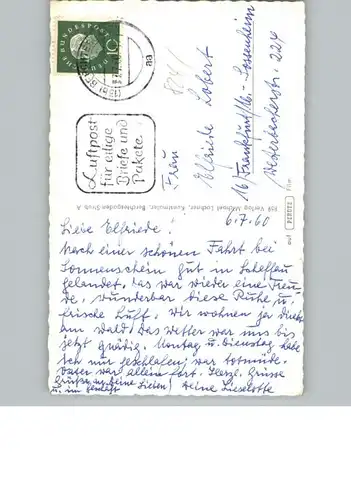 DEUTSCHE BUNDESPOST
10
aa
Luftpost
für eilige
Briefe und
Pakete.
Frau
Elfriede Lobert
16/ Frankfurt/M.-Sossenheim
224
Verlag Michael Lochner, Kunstmaler, Berchtesgaden-Strub
auf PERUTZ Film
6.7.60
Liebe Elfriede!
Nach einer schönen Fahrt bei
Sonnenschein gut in Scheffau
gelandet, das war wieder eine Freu-
de, wunderbar diese Ruhe u.
frische Luft. Wir wohnen ja direkt
am Wald. Das Wetter war uns bis
jetzt gnädig. Montag u. Dienstag habe
ich nur geschlafen, war totmüde.
Vater war allein fort. Herzl. Grüsse
Grüsse an Deine Lieben! Deine Lieselotte
u.